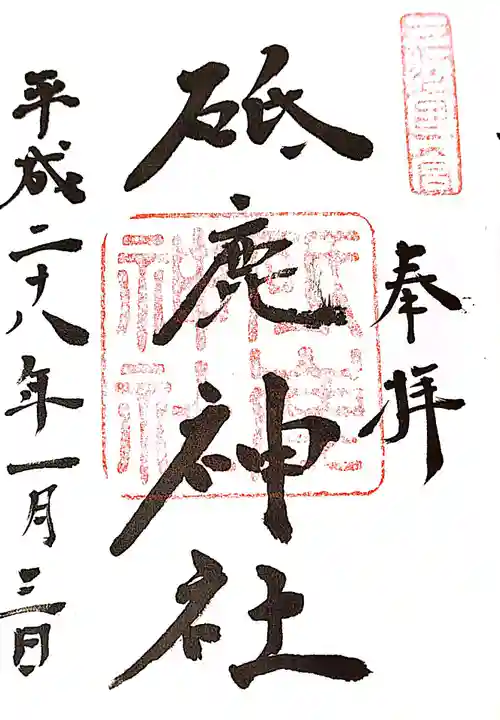 奉拝
砥鹿神社
平成二十八年一月三日